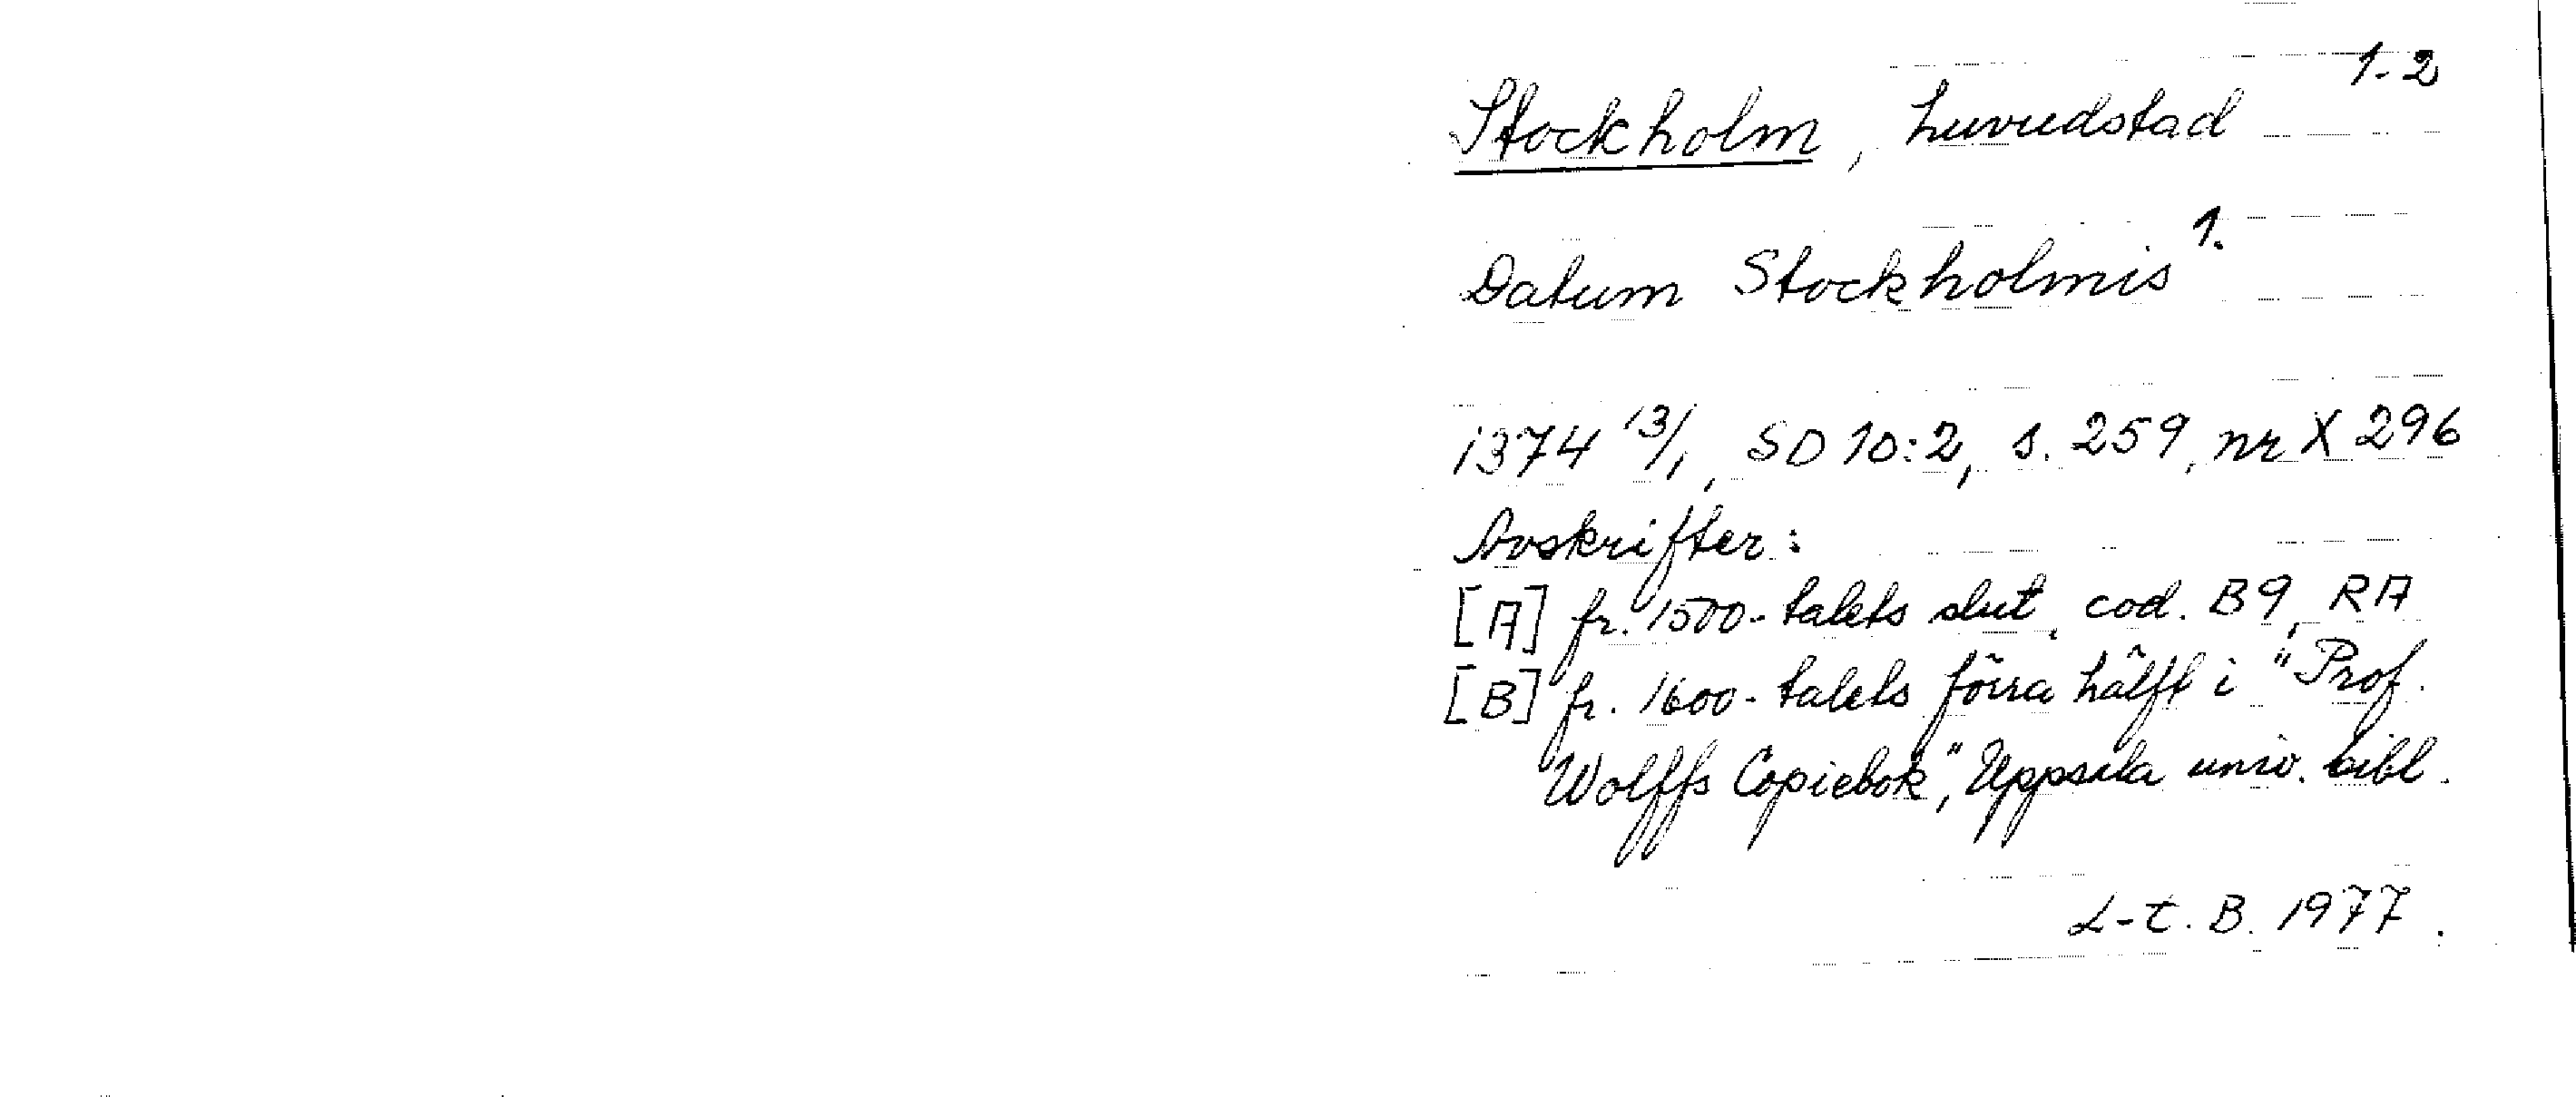 1-2
Stockholm, huvudstad
Datum Stockholmis 1.
1374 13/1, SD 10:2, s. 259, nr X 296
Avskrifter:
[A] fr. 1500-talets slut, cod. B9, RA
[B] fr. 1600-talets förra hälft i "Prof.
Wolffs Copiebok", Uppsala univ. bibl.
L-t. B. 1977.